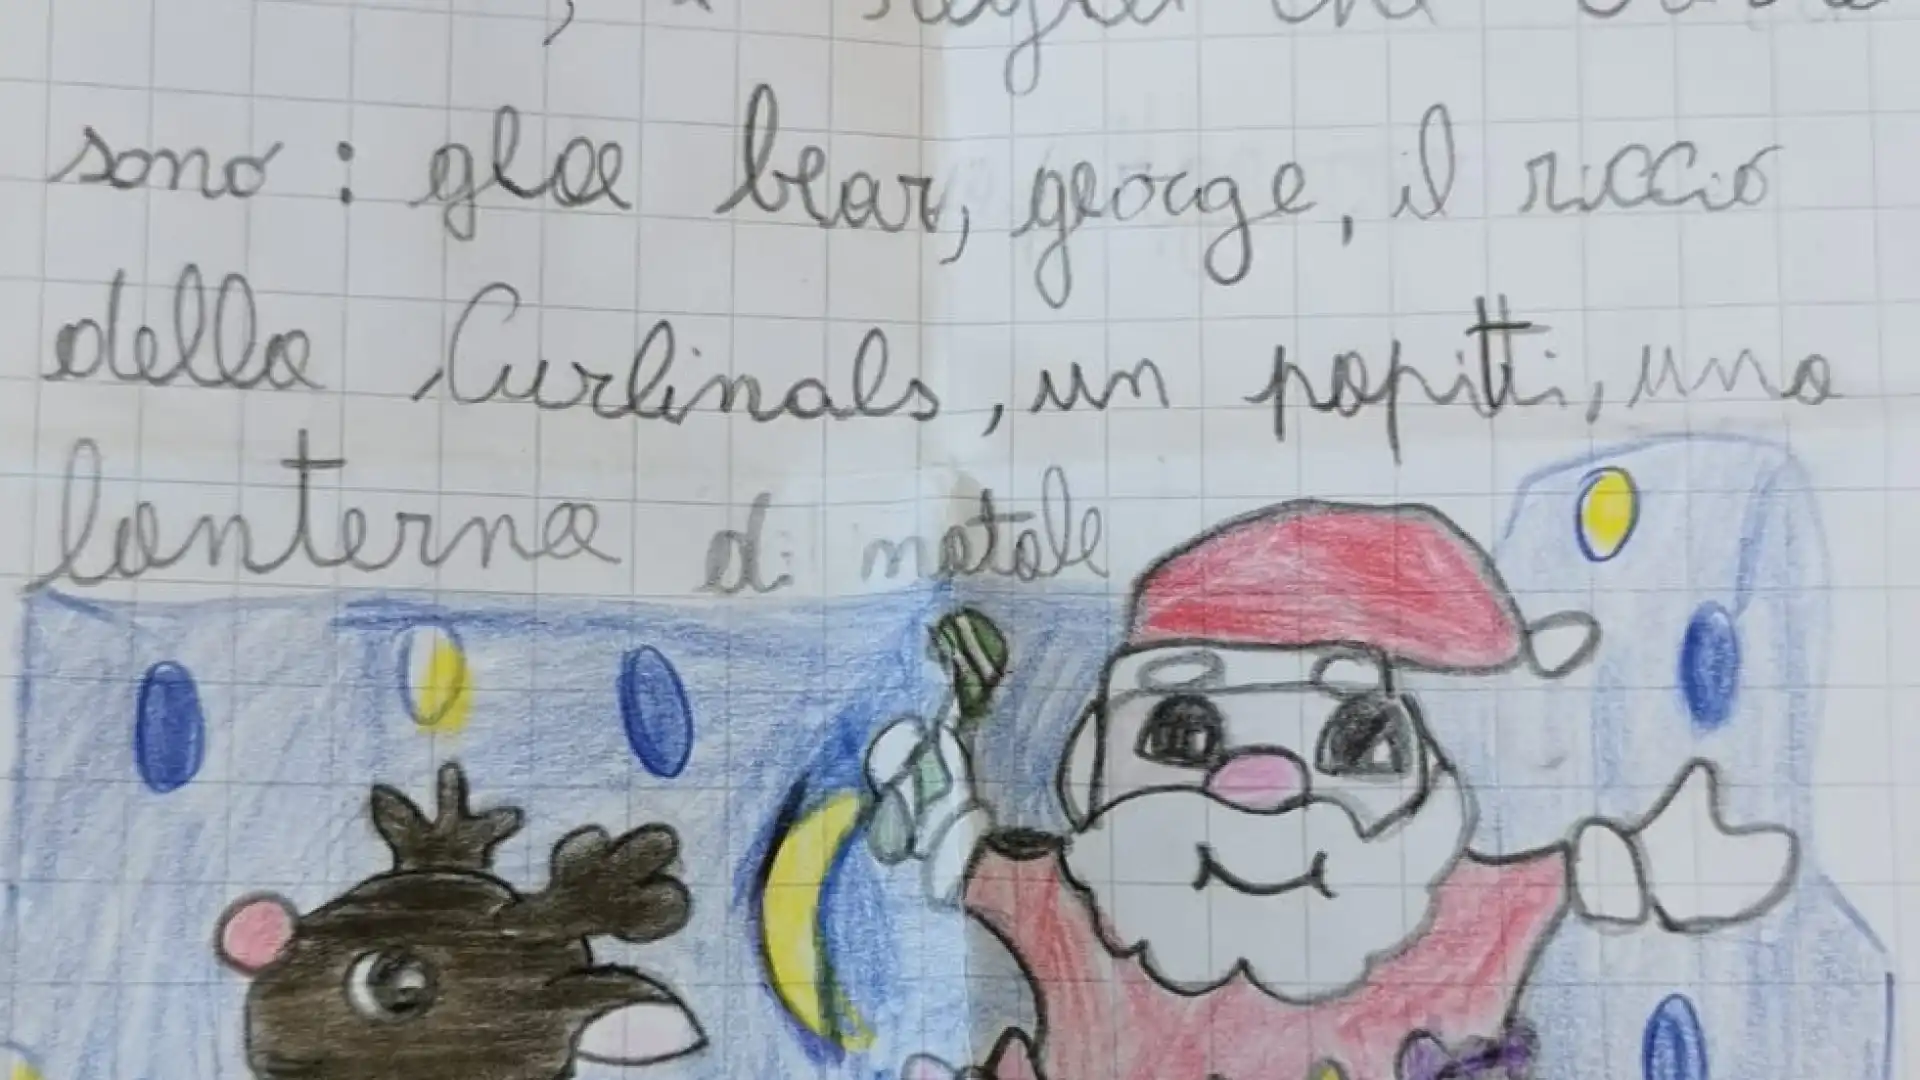 sono: gloe bear, george, il riccio
della Curlimals, un popitti, una
lanterna di natale